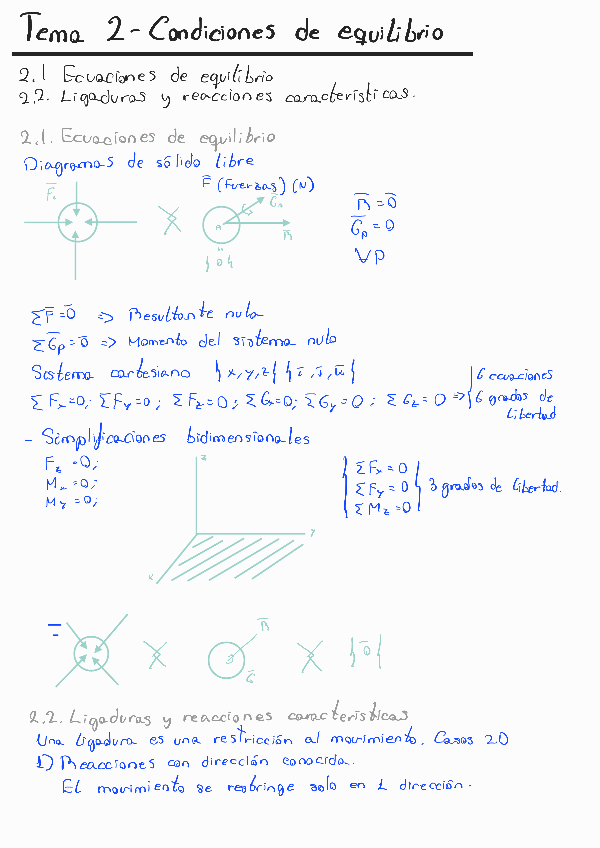 Tema 2 - Condiciones de equilibrio
2.1 Ecuaciones de equilibrio
2.2. Ligaduras y reacciones características.
2.1. Ecuaciones de equilibrio
Diagramas de sólido libre
F̅ (fuerzas) (N)
R̅ = 0̅
G̅p = 0
∀P
ΣF̅ = 0̅ => Resultante nula
ΣG̅p = 0̅ => Momento del sistema nulo
Sistema cartesiano {x, y, z} {i̅, j̅, k̅}
ΣFx = 0; ΣFy = 0; ΣFz = 0; ΣGx = 0; ΣGy = 0; ΣGz = 0 =>
6 ecuaciones
6 grados de
libertad
- Simplificaciones bidimensionales
Fz = 0;
Mx = 0;
My = 0;
z
y
x
ΣFx = 0
ΣFy = 0
ΣMz = 0
3 grados de libertad.
R̅
G̅
{0̅}
2.2. Ligaduras y reacciones características
Una ligadura es una restricción al movimiento. Casos 2D
1) Reacciones con dirección conocida.
El movimiento se restringe solo en 1 dirección.